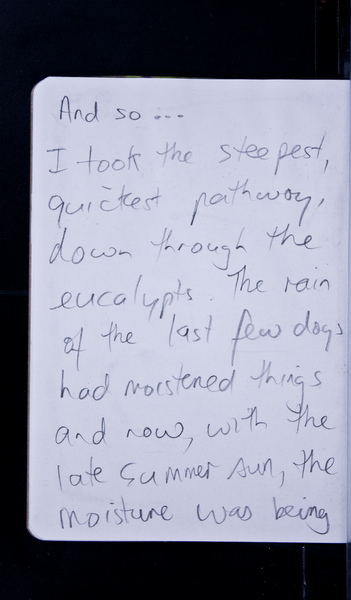 And so ...
I took the steepest,
quickest pathway,
down through the
eucalypts. The rain
of the last few days
had moistened things
and now, with the
late summer sun, the
moisture was being